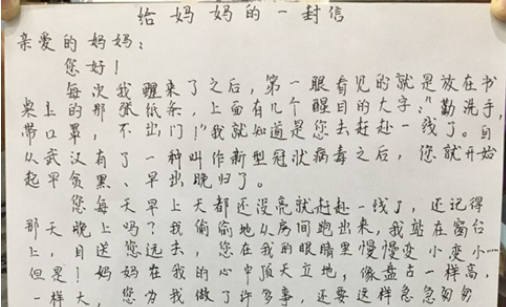 给妈妈的一封信
亲爱的妈妈：
您好！
每次我醒来了之后，第一眼看见的就是放在书
桌上的那张纸条，上面有几个醒目的大字：“勤洗手，
带口罩，不出门！”我就知道是您去赶赴一线了。自
从武汉有了一种叫作新型冠状病毒之后，您就开始
起早贪黑、早出晚归了。
您每天早上天都还没亮就赶赴一线了，还记得
那天晚上吗？我偷偷地从房间跑出来，我站在窗台
上，目送您远去，您在我的眼睛里慢慢变小变小……
但是！妈妈在我的心中顶天立地，像盘古一样高，
一样大，您为我做了许多事，还要这样急急匆匆